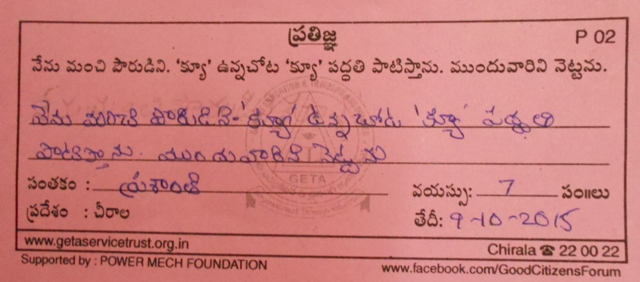 ప్రతిజ్ఞ
P 02
నేను మంచి పౌరుడిని. 'క్యూ' ఉన్నచోట 'క్యూ' పద్ధతి పాటిస్తాను. ముందువారిని నెట్టను.
నేను మంచి పౌరుడిని 'క్యూ' ఉన్నచోట 'క్యూ' పద్ధతి
పాటిస్తాను. ముందువారిని నెట్టను
సంతకం : ప్రశాంతి వయస్సు: 7 సం॥లు
ప్రదేశం : చీరాల తేదీ: 9-10-2015
GETA
www.getaservicetrust.org.in Chirala ☎ 22 00 22
Supported by : POWER MECH FOUNDATION www.facebook.com/GoodCitizensForum